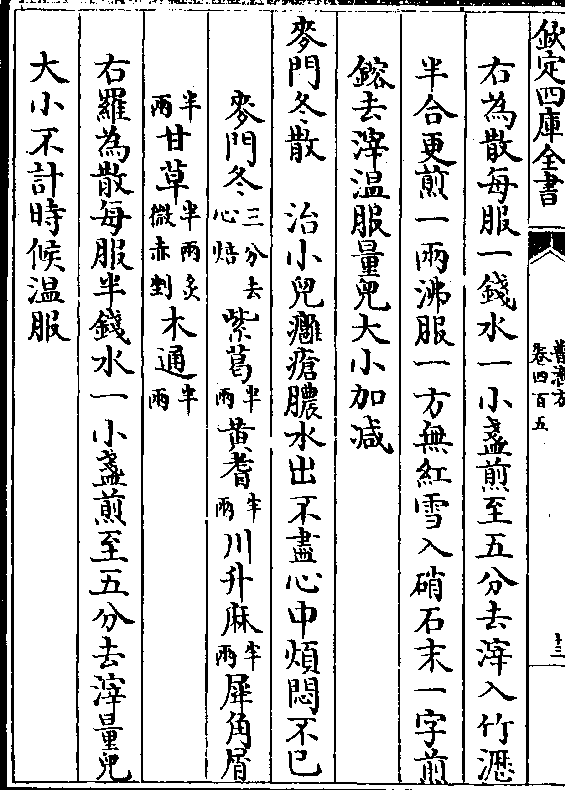 欽定四庫全書
普濟方
卷四百五
十三
右為散每服一錢水一小盞煎至五分去滓入竹瀝
半合更煎一兩沸服一方無紅雪入硝石末一字煎
鎔去滓温服量兒大小加减
麥門冬散 治小兒癰瘡膿水出不盡心中煩悶不已
麥門冬三分去心焙 紫葛半兩 黄耆半兩 川升麻半兩 犀角屑
半兩 甘草半兩炙微赤剉 木通半兩
右羅為散每服半錢水一小盞煎至五分去滓量兒
大小不計時候温服